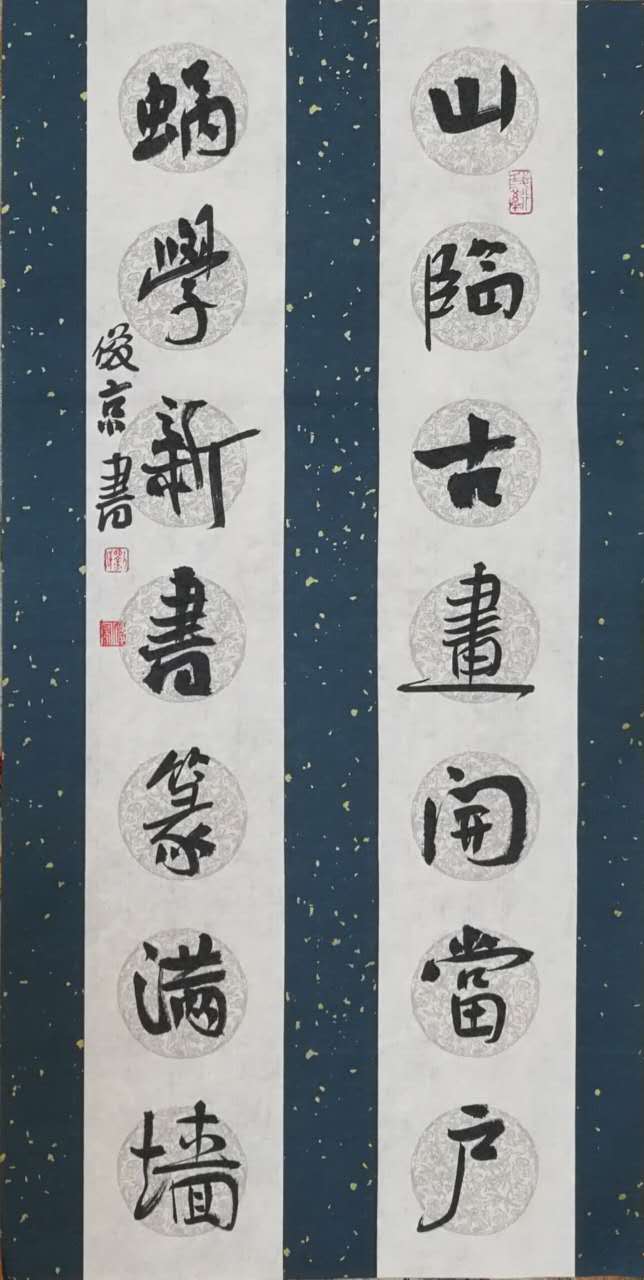 山臨古畫開當户
蝸學新書篆滿墙
俊京書